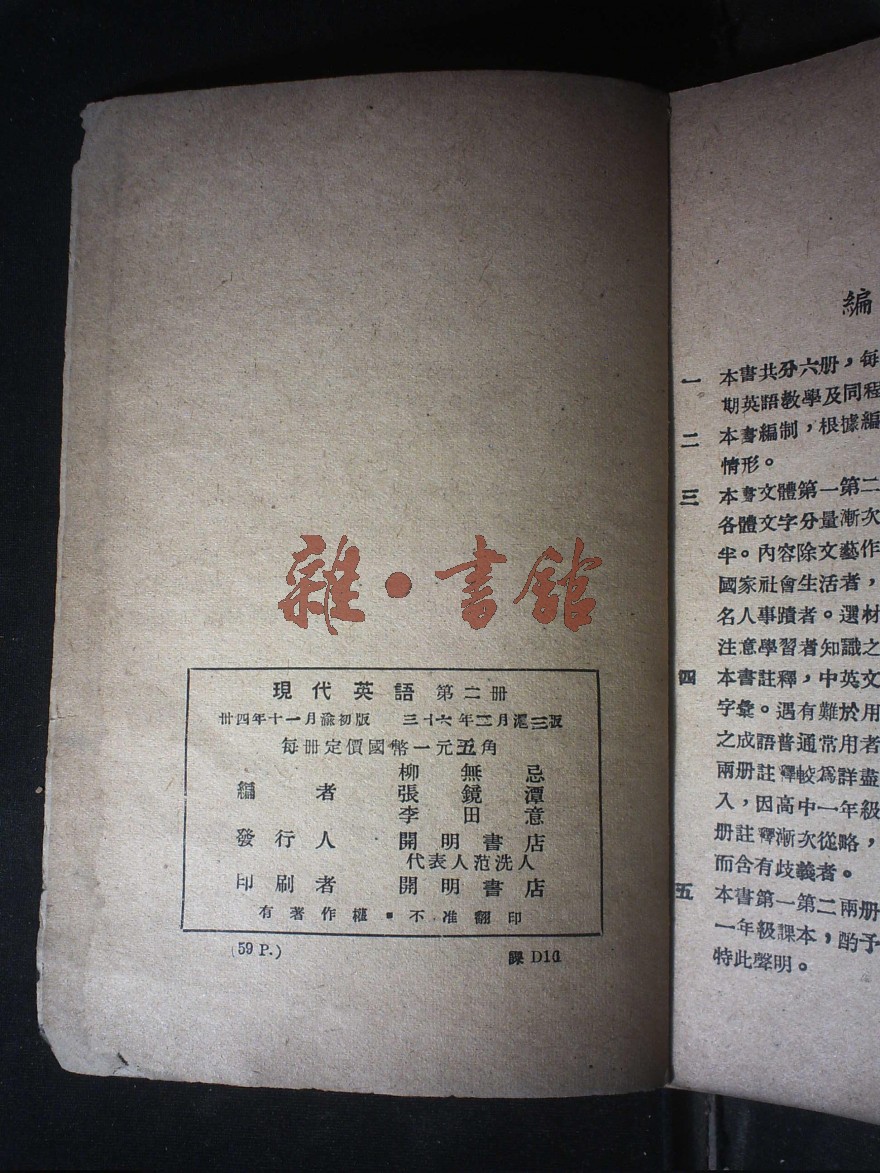 雜·書館
現代英語 第二册
卅四年十一月渝初版 三十六年三月滬三版
每册定價國幣一元五角
編者 柳無忌
張鏡潭
李田意
發行人 開明書店
代表人范洗人
印刷者 開明書店
有著作權·不准翻印
(59 P.) 課 D10
編
一 本書共分六册，每
期英語教學及同程
二 本書編制，根據編
情形。
三 本書文體第一第二
各體文字分量漸次
半。內容除文藝作
國家社會生活者，
名人事蹟者。選材
注意學習者知識之
四 本書註釋，中英文
字彙。遇有難於用
之成語普通常用者
兩册註釋較爲詳盡
入，因高中一年級
册註釋漸次從略，
而含有歧義者。
五 本書第一第二兩册
一年級課本，酌予
特此聲明。